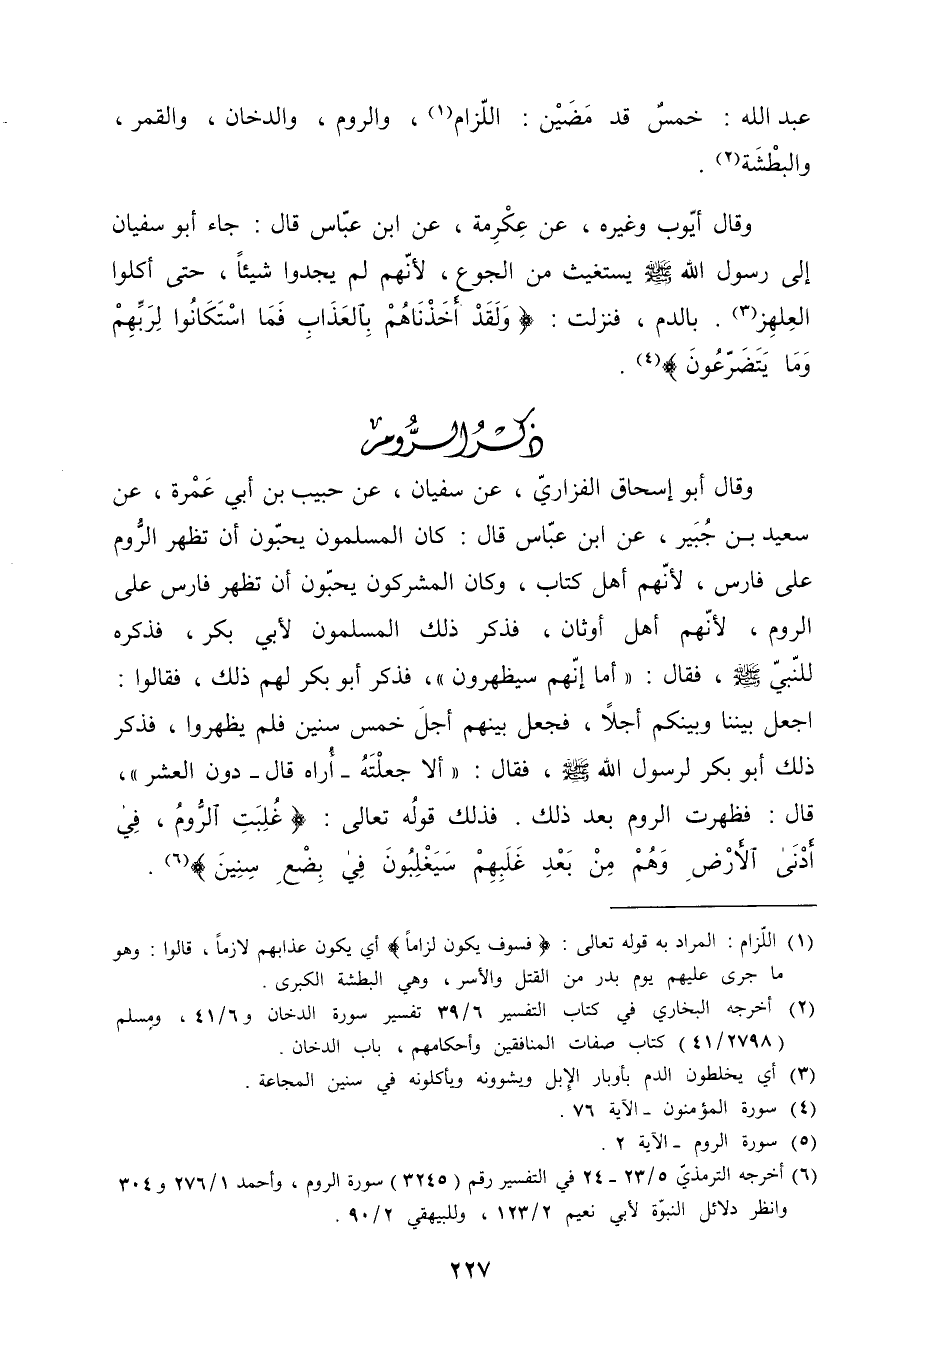 عبد الله : خمسٌ قد مَضَيْن : اللّزام(١) ، والروم ، والدخان ، والقمر ،
والبطْشَة(٢) .
وقال أيّوب وغيره ، عن عِكْرِمة ، عن ابن عبّاس قال : جاء أبو سفيان
إلى رسول الله ﷺ يستغيث من الجوع ، لأنّهم لم يجدوا شيئاً ، حتى أكلوا
العِلهِز(٣) . بالدم ، فنزلت : ﴿ وَلَقَدْ أَخَذْنَاهُمْ بِٱلعَذَابِ فَمَا اسْتَكَانُوا لِرَبِّهِمْ
وَمَا يَتَضَرّعُونَ ﴾(٤) .
ذكر الرُّوم
وقال أبو إسحاق الفزاريّ ، عن سفيان ، عن حبيب بن أبي عَمْرة ، عن
سعيد بـن جُبَير ، عن ابن عبّاس قال : كان المسلمون يحبّون أن تظهر الرُّوم
على فارس ، لأنّهم أهل كتاب ، وكان المشركون يحبّون أن تظهر فارس على
الروم ، لأنّهم أهل أوثان ، فذكر ذلك المسلمون لأبي بكر ، فذكره
للنّبيّ ﷺ ، فقال : « أما إنّهم سيظهرون »، فذكر أبو بكر لهم ذلك ، فقالوا :
اجعل بيننا وبينكم أجلاً ، فجعل بينهم أجلَ خمس سنين فلم يظهروا ، فذكر
ذلك أبو بكر لرسول الله ﷺ ، فقال : « ألا جعلْتَهُ ـ أُراه قال ـ دون العشر »،
قال : فظهرت الروم بعد ذلك . فذلك قولُه تعالى : ﴿ غُلِبَتِ ٱلرُّومُ ، فِي
أَدْنَىٰ ٱلأَرْضِ وَهُمْ مِنْ بَعْدِ غَلَبِهِمْ سَيَغْلِبُونَ فِي بِضْعِ سِنِينَ ﴾(٦) .
(١) اللّزام : المراد به قوله تعالى : ﴿ فسوف يكون لزاماً ﴾ أي يكون عذابهم لازماً ، قالوا : وهو
ما جرى عليهم يوم بدر من القتل والأسر ، وهي البطشة الكبرى .
(٢) أخرجه البخاري في كتاب التفسير ٣٩/٦ تفسير سورة الدخان و ٤١/٦ ، ومسلم
( ٤١/٢٧٩٨ ) كتاب صفات المنافقين وأحكامهم ، باب الدخان .
(٣) أي يخلطون الدم بأوبار الإبل ويشوونه ويأكلونه في سنين المجاعة .
(٤) سورة المؤمنون ـ الآية ٧٦ .
(٥) سورة الروم ـ الآية ٢ .
(٦) أخرجه الترمذيّ ٢٣/٥ ـ ٢٤ في التفسير رقم ( ٣٢٤٥ ) سورة الروم ، وأحمد ٢٧٦/١ و ٣٠٤
وانظر دلائل النبوّة لأبي نعيم ١٢٣/٢ ، وللبيهقي ٩٠/٢ .
٢٢٧